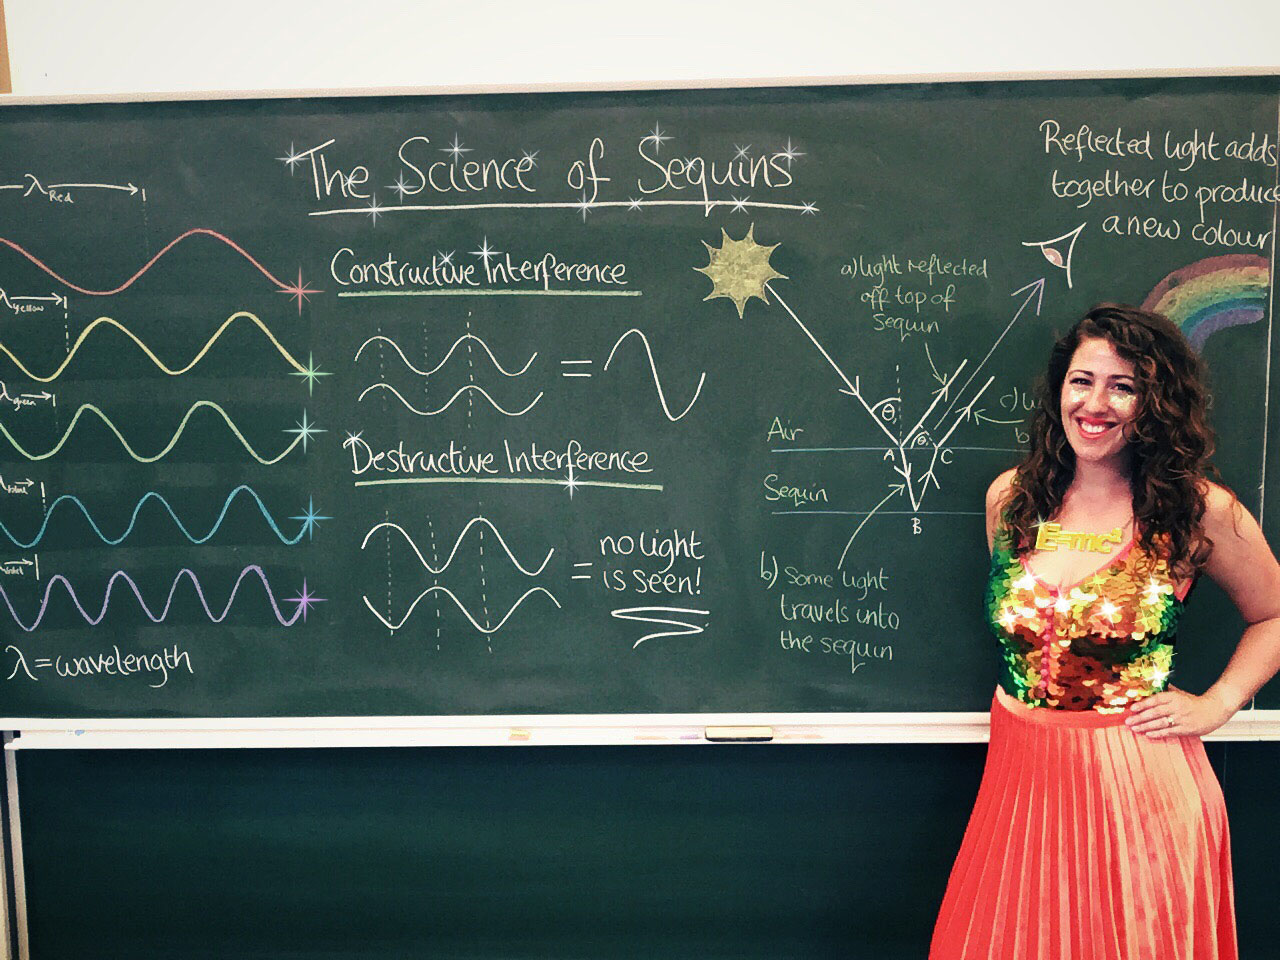 The Science of Sequins
λRed
λyellow
λgreen
λviolet
λ=wavelength
Constructive Interference
=
Destructive Interference
=
no light
is seen!
Reflected light adds
together to produce
a new colour
a) light reflected
off top of
sequin
Air
Sequin
θ
θ
A
C
B
c)
b) Some light
travels into
the sequin
E=mc²